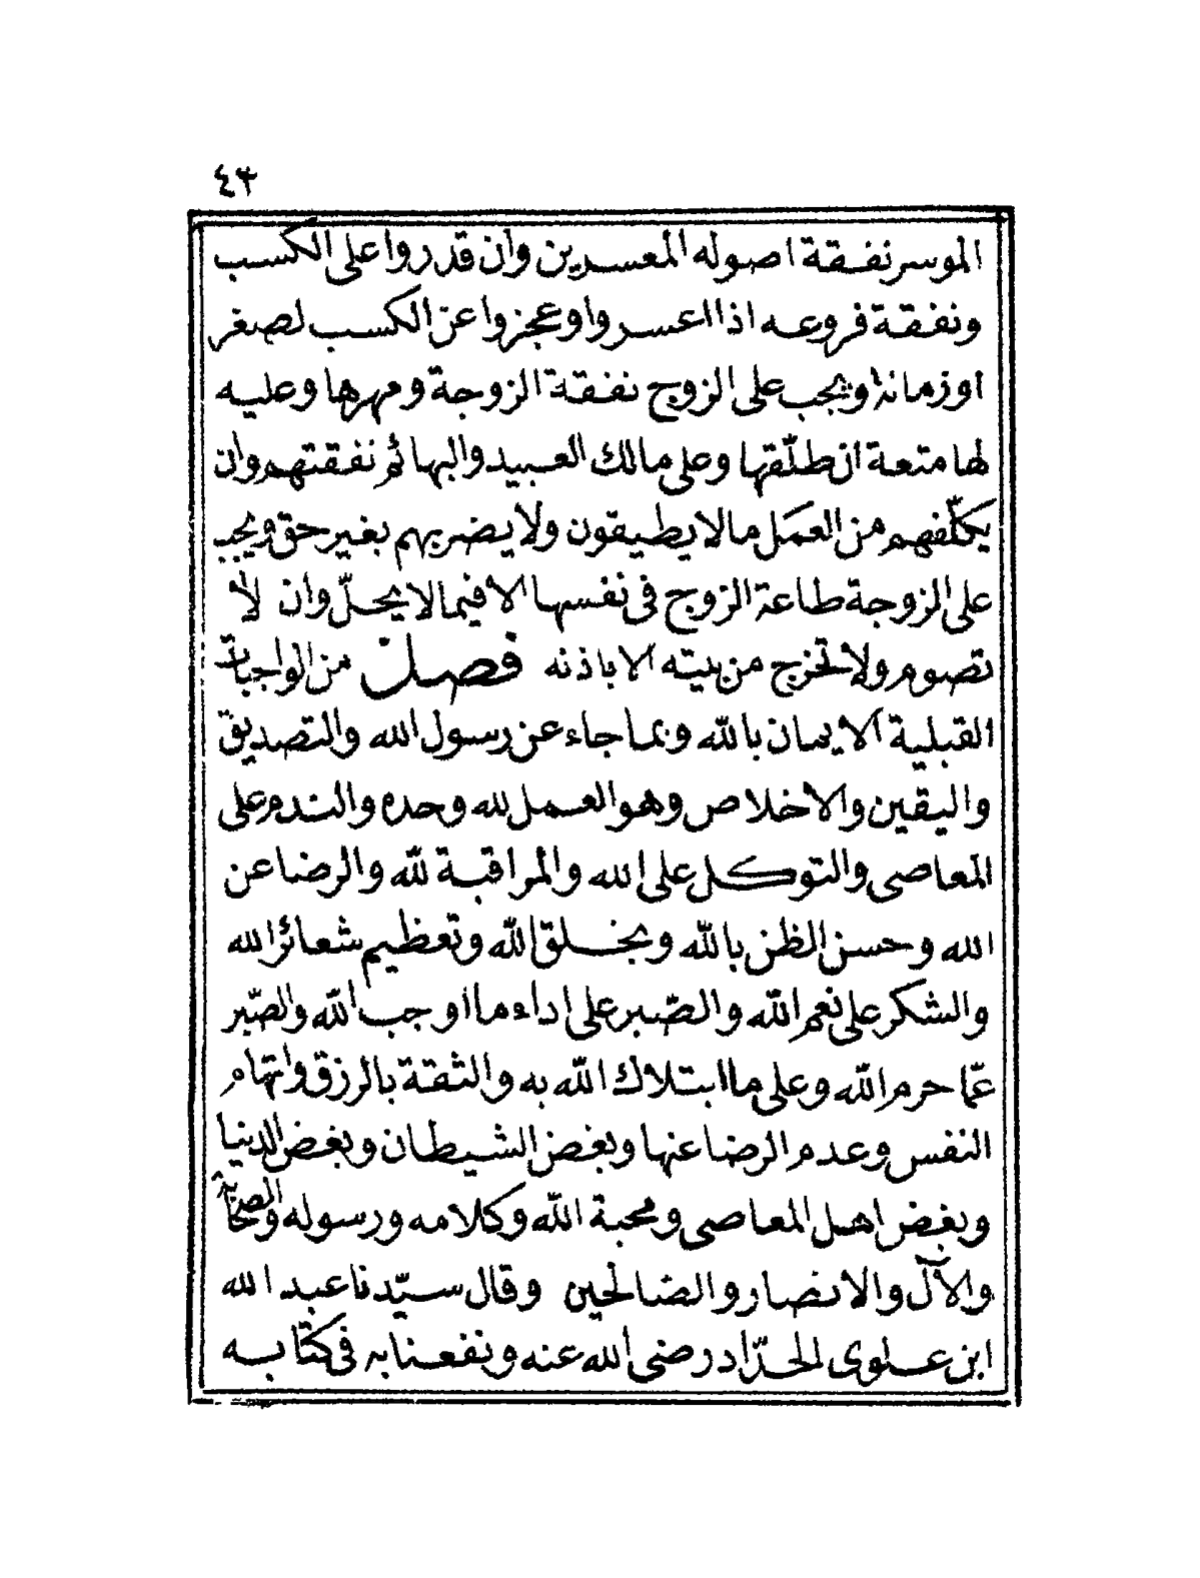 ٤٣
الموسر نفقة اصوله المعسرين وان قدروا على الكسب
ونفقة فروعه اذا اعسروا وعجزوا عن الكسب لصغر
او زمانة ويجب على الزوج نفقة الزوجة ومهرها وعليه
لها متعة ان طلّقها وعلى مالك العبيد والبهائم نفقتهم وان
يكلّفهم من العمل مالا يطيقون ولا يضربهم بغير حق ويجب
على الزوجة طاعة الزوج فى نفسها الا فيما لا يحلّ وان لا
تصوم ولا تخرج من بيته الا باذنه فصل من الواجبات
القبلية الايمان باللّه وبما جاء عن رسول الله والتصديق
واليقين والاخلاص وهو العمل لله وحده والندم على
المعاصى والتوكل على الله والمراقبة للّه والرضا عن
الله وحسن الظن باللّه وبخلق اللّه وتعظيم شعائر الله
والشكر على نعم اللّه والصّبر على اداء ما اوجب اللّه والصّبر
عمّا حرم اللّه وعلى ما ابتلاك اللّه به والثقة بالرزق واتهام
النفس وعدم الرضا عنها وبغض الشيطان وبغض الدنيا
وبغض اهل المعاصى ومحبة اللّه وكلامه ورسوله والصحابة
والآل والانصار والصالحين وقال سيّدنا عبد الله
ابن علوى الحدّاد رضى الله عنه ونفعنا به فى كتابه